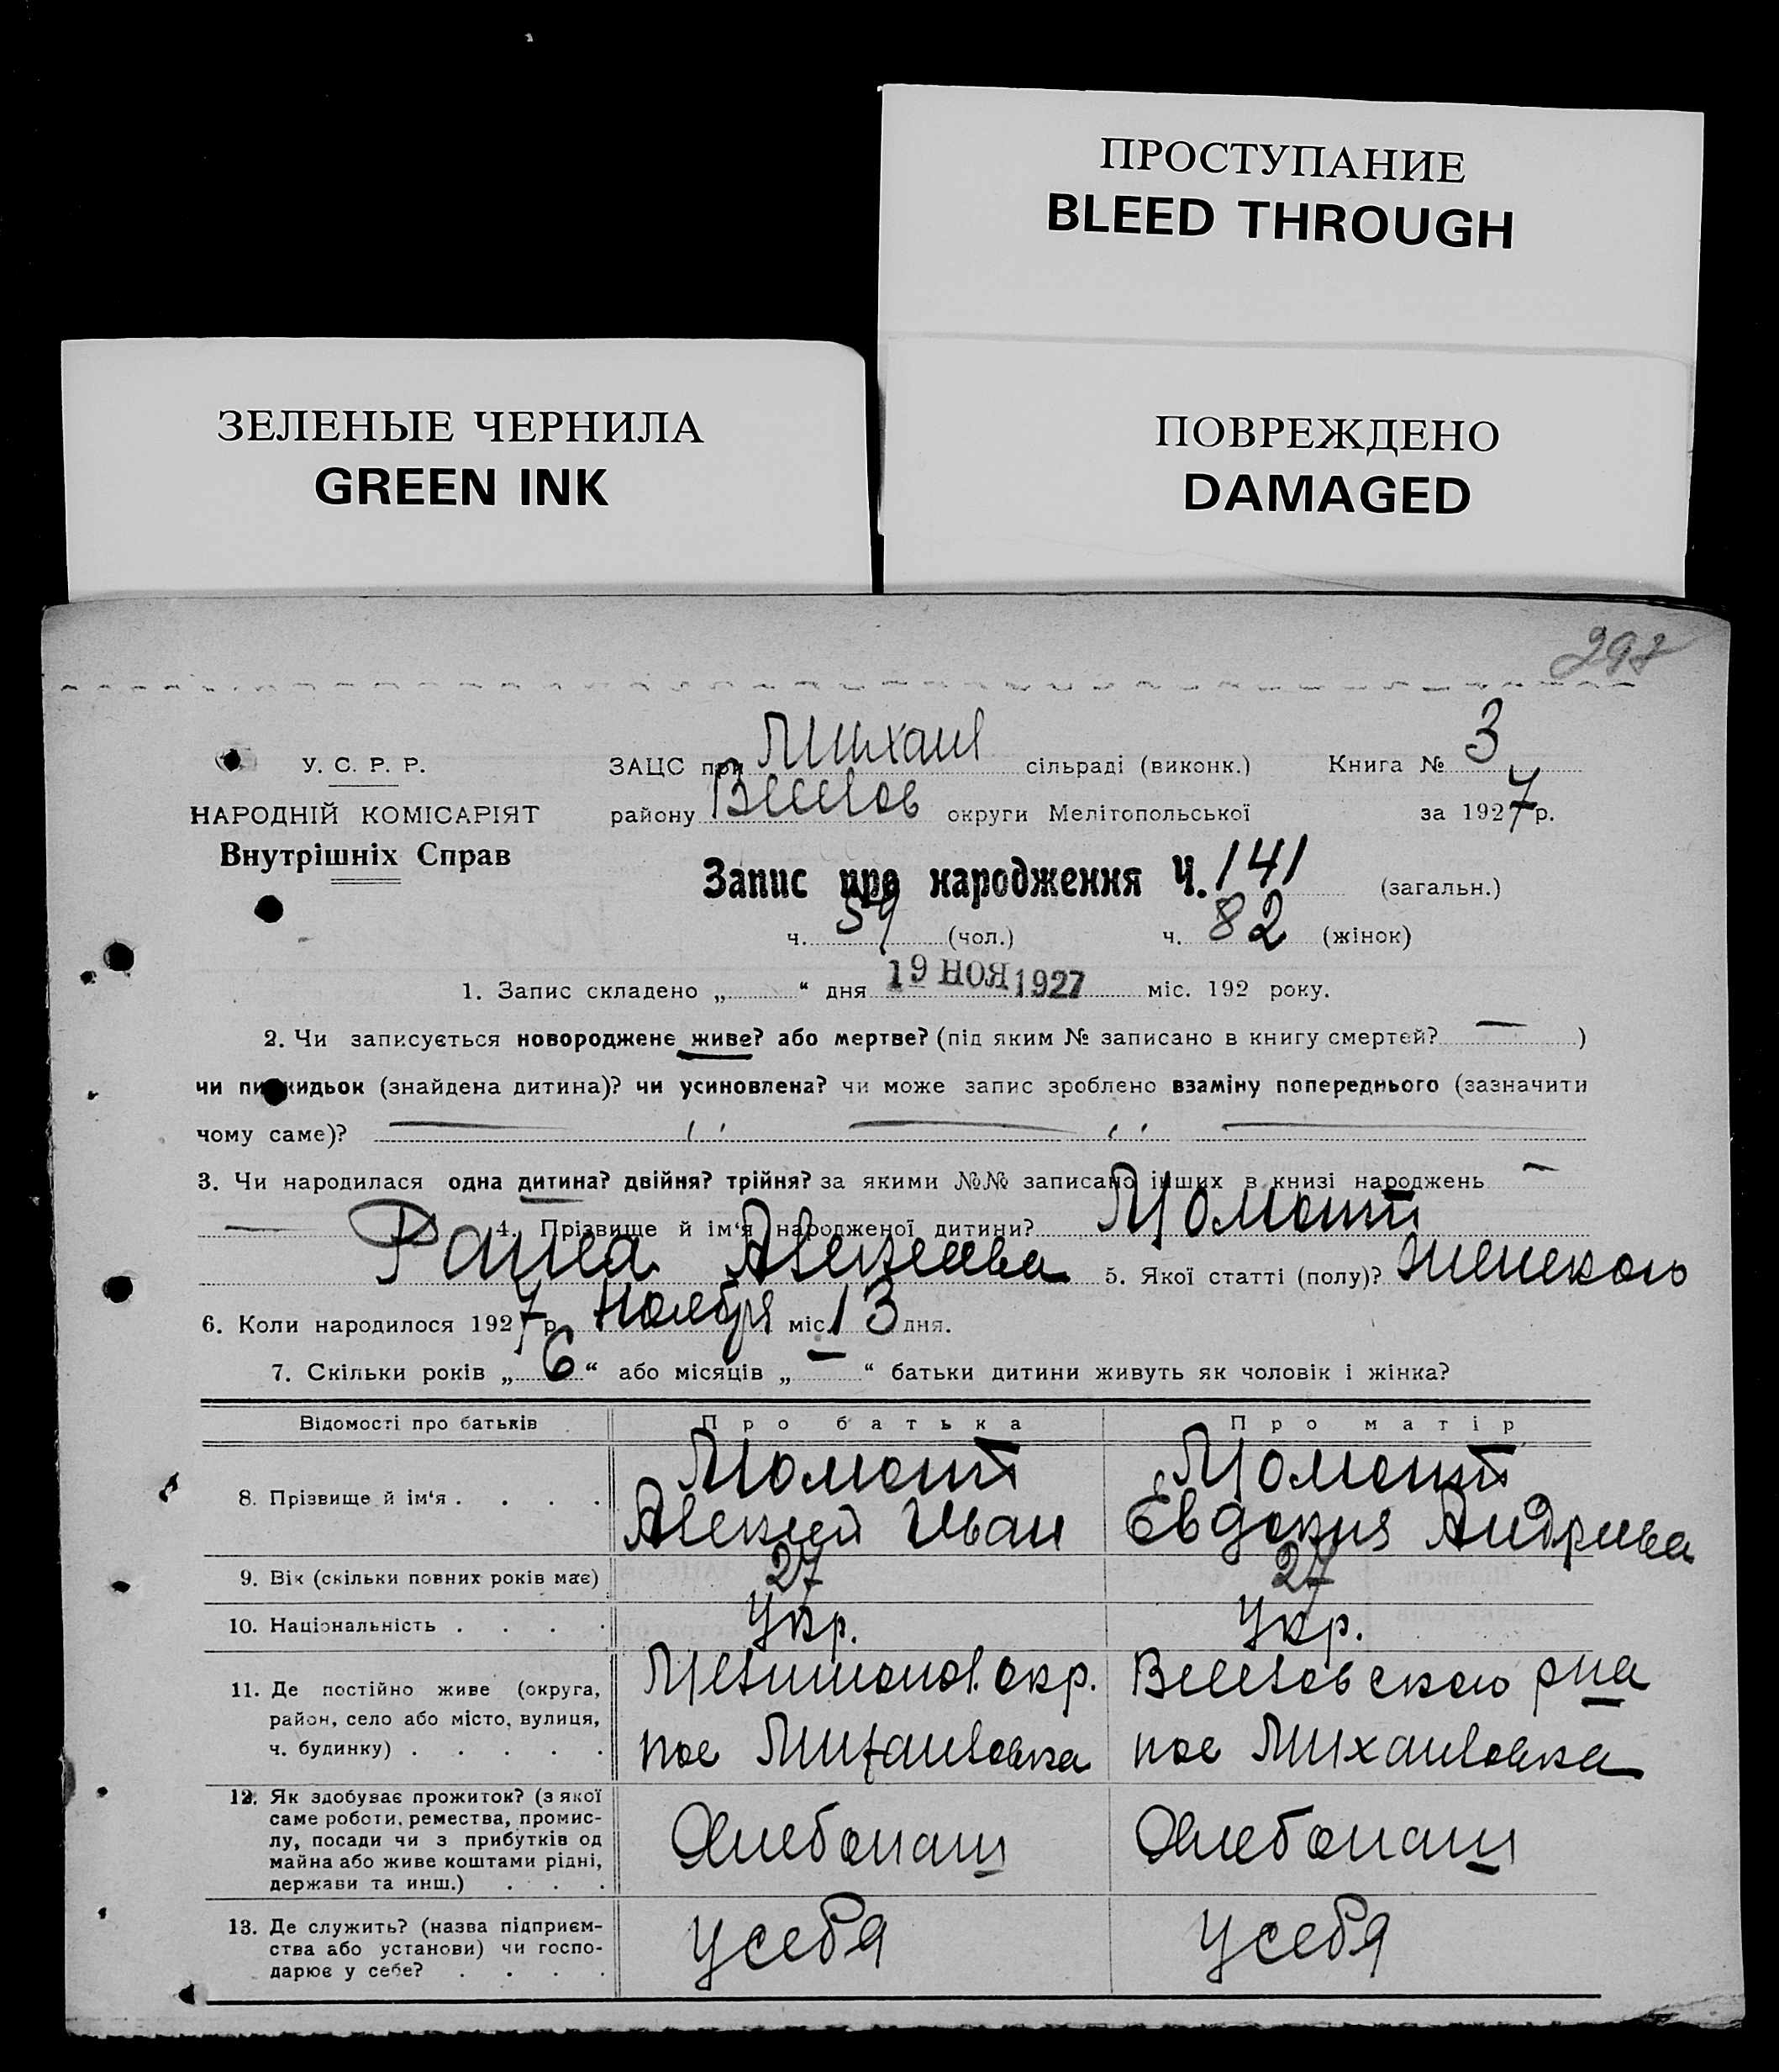 ПРОСТУПАНИЕ
BLEED THROUGH
ЗЕЛЕНЫЕ ЧЕРНИЛА
GREEN INK
ПОВРЕЖДЕНО
DAMAGED
У. С. Р. Р.
НАРОДНІЙ КОМІСАРІЯТ
Внутрішніх Справ
ЗАЦС при Михаил сільраді (виконк.) Книга № 3
району Веселов округи Мелітопольської за 1927 р.
Запис про народження Ч. 141 (загальн.)
ч. 59 (чол.) ч. 82 (жінок)
1. Запис складено „ “ дня 19 НОЯ 1927 міс. 192 року.
2. Чи записується новороджене живе? або мертве? (під яким № записано в книгу смертей? — )
чи підкидьок (знайдена дитина)? чи усиновлена? чи може запис зроблено взаміну попереднього (зазначити
чому саме)?
3. Чи народилася одна дитина? двійня? трійня? за якими №№ записано інших в книзі народжень —
4. Прізвище й ім‘я народженої дитини?
Алексеева 5. Якої статті (полу)? женского
6. Коли народилося 1927 р. Ноября міс. 13 дня.
7. Скільки років „ 6 “ або місяців „ — “ батьки дитини живуть як чоловік і жінка?
Відомості про батьків Про батька Про матір
8. Прізвище й ім‘я . . . .
Алексей Иван Евдокия Андреева
9. Вік (скільки повних років має) 27 27
10. Національність . . . . Укр. Укр.
11. Де постійно живе (округа, Мелитопол. окр. Веселовского рна
район, село або місто, вулиця,
ч. будинку) . . . . . пос Михаиловка пос Михаиловка
12. Як здобуває прожиток? (з якої
саме роботи, ремества, промис-
лу, посади чи з прибутків од Хлебопаш Хлебопаш
майна або живе коштами рідні,
держави та инш.) . . .
13. Де служить? (назва підприєм-
ства або установи) чи госпо- у себя у себя
дарює у себе? . . . .